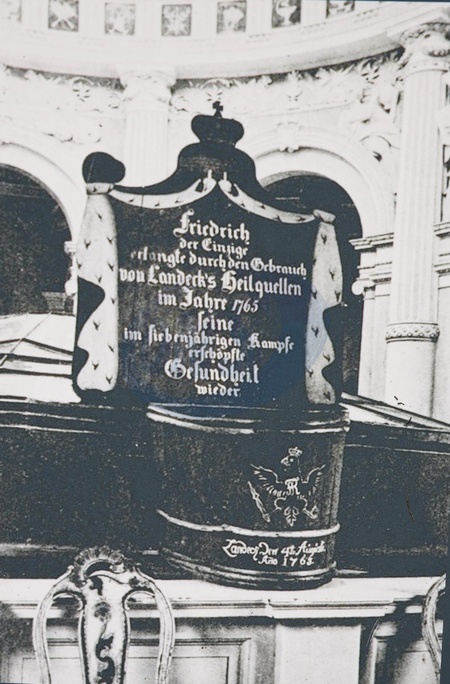 Friedrich
der Einzige
erlangte durch den Gebrauch
von Landeck's Heilquellen
im Jahre 1765
seine
im siebenjährigen Kampfe
erschöpfte
Gesundheit
wieder
FR
Landeck, Den 4t August.
Ano 1765.